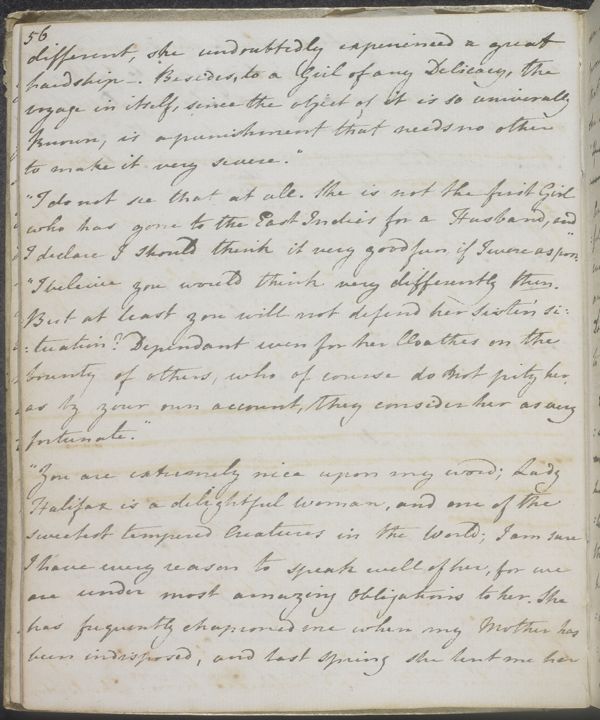 56
different, she undoubtedly experienced a great
hardship—. Besides, to a Girl of any Delicacy, the
voyage in itself, since the object of it is so universally
known, is a punishment that needs no other
to make it very severe."
"I do not see that at all. She is not the first Girl
who has gone to the East Indies for a Husband, and
I declare I should think it very good fun if I were as poor."
"I beleive you would think very differently then.
But at least you will not defend her sister's si:
:tuation? Dependant even for her Cloathes on the
bounty of others, who of course do not pity her,
as by your own account, they consider her as very
fortunate."
"You are extremely nice upon my word; Lady
Halifax is a delightful woman, and one of the
sweetest tempered Creatures in the World; I am sure
I have every reason to speak well of her, for we
are under most amazing Obligations to her. She
has frequently chaproned me when my Mother has
been indisposed, and last Spring she lent me her